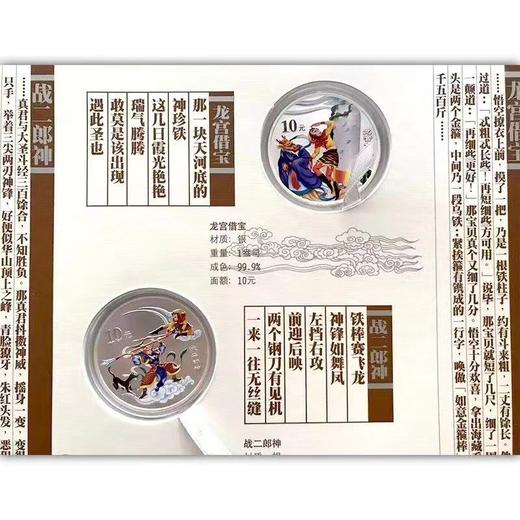 龙宫借宝
……悟空撩衣上前，摸了一把，乃是一根铁柱子，约有斗来粗，二丈有余长。
过道：「忒粗忒长些！再短细些方可用。」说毕，那宝贝就短了几尺，细了一
颠道：「再细些更好！」那宝贝真个又细了几分。悟空十分欢喜，拿出海藏
头是两个金箍，中间乃一段乌铁；紧挨箍有镌成的一行字，唤做「如意金箍棒
千五百斤……
龙宫借宝
那一块天河底的
神珍铁
这几日霞光艳艳
瑞气腾腾
敢莫是该出现
遇此圣也
10元
龙宫借宝
材质：银
重量：1盎司
成色：99.9%
面额：10元
10元
战二郎神
铁棒赛飞龙
神锋如舞凤
左挡右攻
前迎后映
两个钢刀有见机
一来一往无丝缝
战二郎神
材质：银
战二郎神
……真君与大圣斗经三百馀合，不知胜负。那真君抖擞神威，摇身一变，变得
只手，举着三尖两刃神锋，好便似华山顶上之峰，青脸獠牙，朱红头发，恶